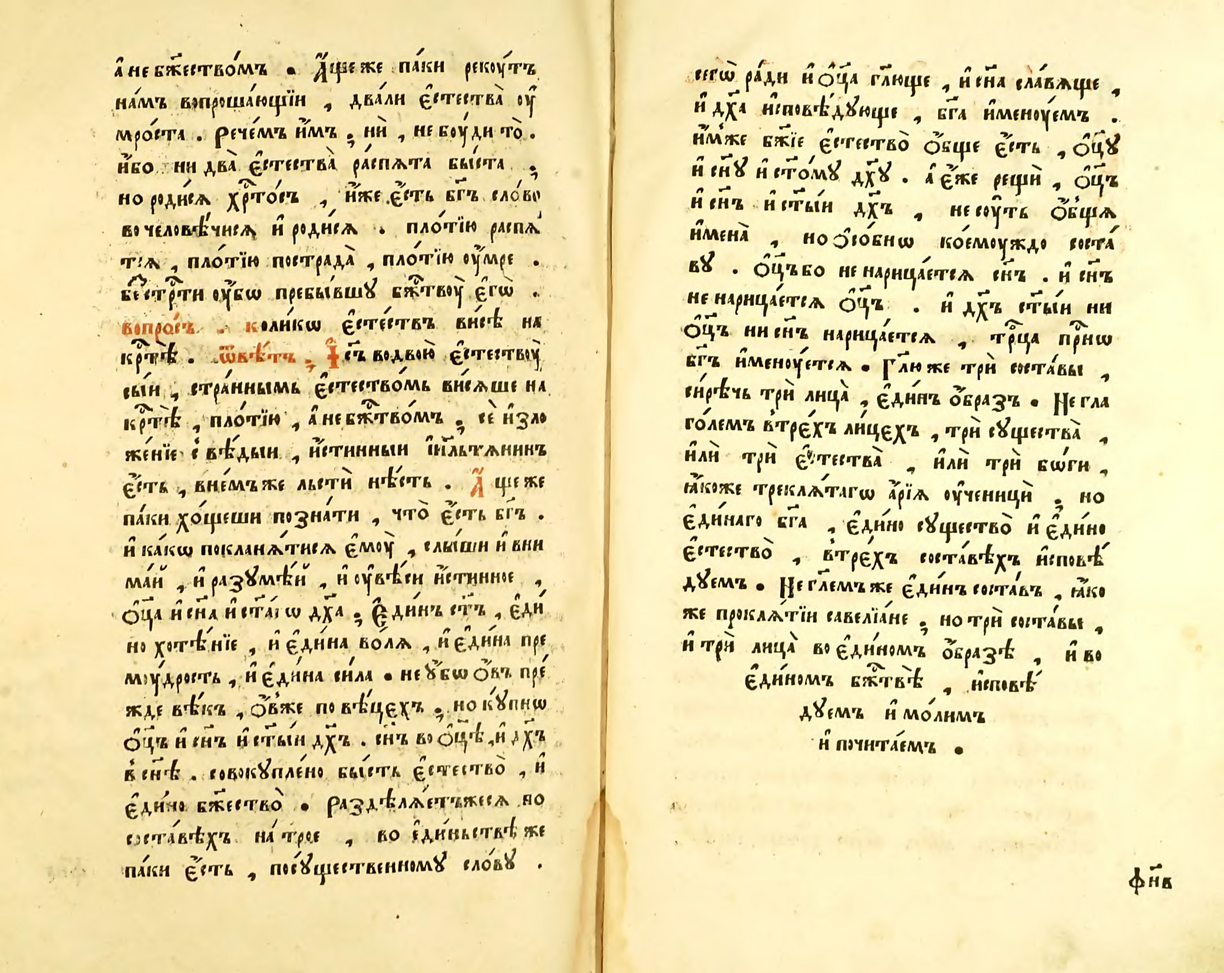 а҆ не бж҃ество́мъ . А҆́ще же па́ки реку́тъ
на́мъ вопроша́ющїи , два́ли є҆стества̀ оу҆
мро́ста . Рече́мъ и҆̀мъ , нѝ , не бу́ди то̀ .
и҆́бо ни два̀ є҆стества̀ распѧ́та бы́ста ,
но роди́сѧ хрⷭ҇то́съ , и҆́же є҆́сть бг҃ъ сло́во
вочеловѣ́чисѧ и҆ роди́сѧ . пло́тїю распѧ́
тсѧ , пло́тїю пострада̀ , пло́тїю оу҆́мре .
бестрⷭ҇ти оу҆́бѡ пребы́вшꙋ бжⷭ҇тву̀ є҆гѡ̀ .
вопро́съ . коли́кѡ є҆сте́ствъ висѣ̀ на
крⷭ҇тѣ̀ . Ѿвѣ́тъ , І҆с҃ъ во двою̀ є҆стеству̀
сы́и , стра́ннымь є҆стество́мь висѧ́ше на
крⷭ҇тѣ̀ , пло́тїю , а҆ не бжⷭ҇тво́мъ , сѐ и҆зло
же́нїе свѣ́дыи , и҆́стинныи і҆и҃льтѧнинъ
є҆́сть , в не́мъ же льстѝ нѣ́сть . А҆́ще же
па́ки хо́щеши позна́ти , что̀ є҆́сть бг҃ъ .
и҆ ка́кѡ поклана́тисѧ є҆му̀ , слы́ши и҆ вни
ма́й , и҆ разꙋмѣ́й , и҆ оу҆вѣ́си и҆́стинное ,
ѻ҆ц҃а и҆ сн҃а и҆ ст҃а́гѡ дх҃а , Е҆ди́нъ ст҃ъ , є҆ди́
но хотѣ́нїе , и҆ є҆ди́на во́лѧ , и҆ є҆ди́на пре
му́дрость , и҆ є҆ди́на си́ла . не ꙋ҆́бѡ ѻ҆́въ пре́
жде вѣ́къ , ѻ҆́вже по вѣ́цехъ , но кꙋ́пнѡ
ѻ҆ц҃ъ и҆ сн҃ъ и҆ ст҃ы́и дх҃ъ . сн҃ъ во ѻ҆ц҃ѣ̀ , и҆ дх҃ъ
в сн҃ѣ . совокꙋпле́но бы́сть є҆стество̀ , и҆
є҆ди́но бж҃ество̀ . Раздѣлѧ́етъжесѧ во
соста́вѣхъ на́ трое , во є҆ди́ньствѣ же
па́ки є҆́сть , посꙋ́щественномꙋ сло́вꙋ .
сегѡ̀ ра́ди и҆ ѻ҆ц҃а гл҃юще , и҆ сн҃а сла́вѧще ,
и҆ дх҃а и҆сповѣ́дꙋюще , бг҃а и҆менꙋ́емъ .
и҆́мже бж҃їе є҆стество̀ ѻ҆́бще є҆́сть , ѻ҆ц҃ꙋ
и҆ сн҃ꙋ и҆ ст҃о́мꙋ дх҃ꙋ . а҆ є҆́же рещѝ , ѻ҆ц҃ъ
и҆ сн҃ъ и҆ ст҃ы́и дх҃ъ , не су́ть ѻ҆́бщаѧ
и҆мена̀ , но ѻ҆со́бнѡ кое́муждо соста́
вꙋ . ѻ҆ц҃ъ бо не нарица́етсѧ сн҃ъ . и҆ сн҃ъ
не нарица́етсѧ ѻ҆ц҃ъ . и҆ дх҃ъ ст҃ы́и ни
ѻ҆ц҃ъ ни сн҃ъ нарица́етсѧ , трⷪ҇ца прⷭ҇нѡ
бг҃ъ и҆менꙋ́етсѧ . Гл҃ю же трѝ соста́вы ,
си́рѣчь трѝ лица̀ , є҆ди́нъ ѻ҆́бразъ . Не гла
го́лемъ в тре́хъ ли́цехъ , трѝ сꙋщества̀ ,
и҆лѝ трѝ є҆стества̀ , и҆лѝ трѝ бѡ́ги ,
ꙗ҆́коже треклѧ́тагѡ а҆́рїѧ оу҆ченицы̀ , но
є҆ди́наго бг҃а , є҆ди́но сꙋщество̀ и҆ є҆ди́но
є҆стество̀ , в тре́хъ соста́вѣхъ и҆сповѣ́
дꙋемъ . Не гл҃емъ же є҆ди́нъ соста́въ , ꙗ҆́ко
же проклѧ́тїи савелїа́не , но трѝ соста́вы ,
и҆ трѝ лица̀ во є҆ди́номъ ѻ҆́бразѣ , и҆ во
є҆ди́номъ бжⷭ҇твѣ̀ , и҆сповѣ́
дꙋемъ и҆ мо́лимъ
и҆ почита́емъ .
фн҃в